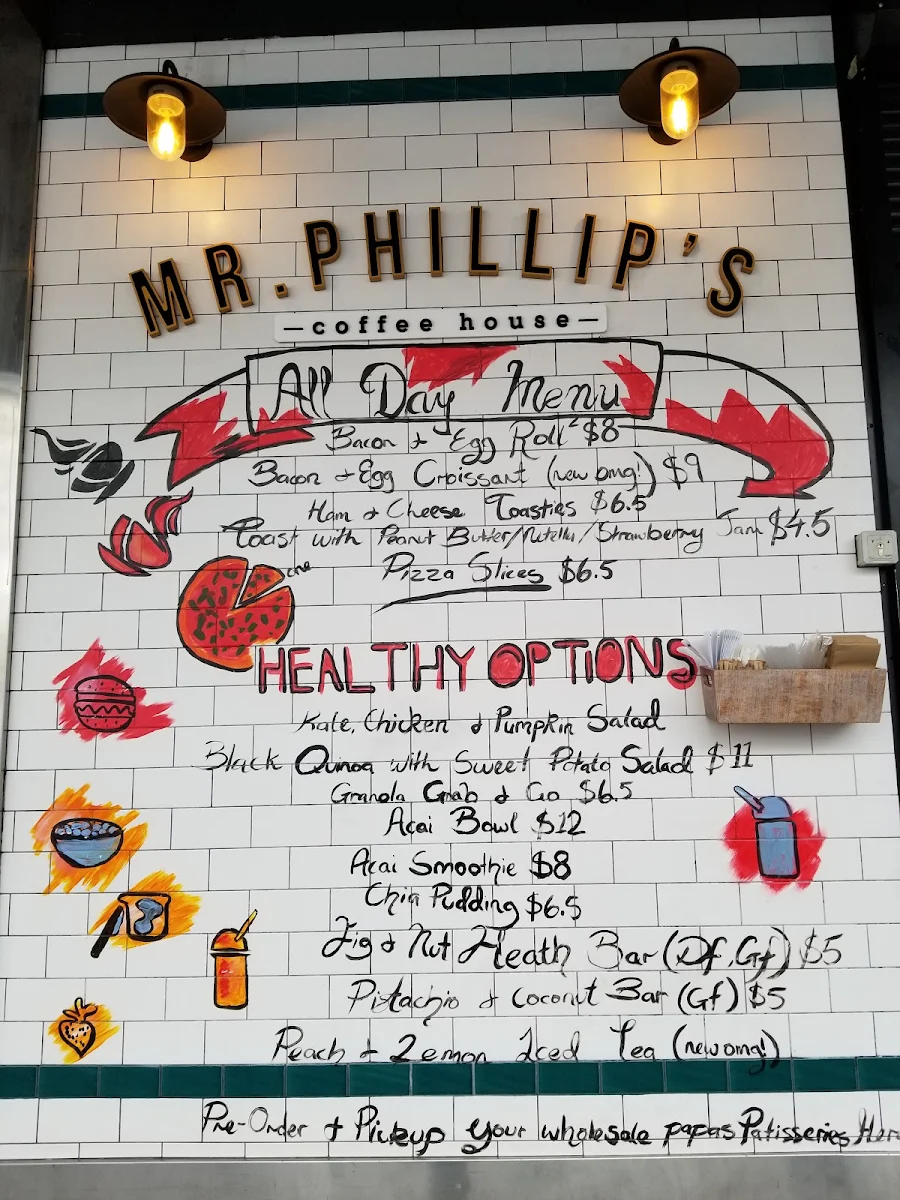 MR. PHILLIP'S
—coffee house—
All Day Menu
Bacon + Egg Roll $8
Bacon + Egg Croissant (new omg!) $9
Ham & Cheese Toasties $6.5
Toast with Peanut Butter/Nutella/Strawberry Jam $4.5
Pizza Slices $6.5
HEALTHY OPTIONS
Kale, Chicken & Pumpkin Salad
Black Quinoa with Sweet Potato Salad $11
Granola Grab & Go $6.5
Acai Bowl $12
Acai Smoothie $8
Chia Pudding $6.5
Fig & Nut Heath Bar (Df, Gf) $5
Pistachio & Coconut Bar (Gf) $5
Peach + Lemon Iced Tea (new omg!)
Pre-Order + Pickup your wholesale papas Patisseries Here